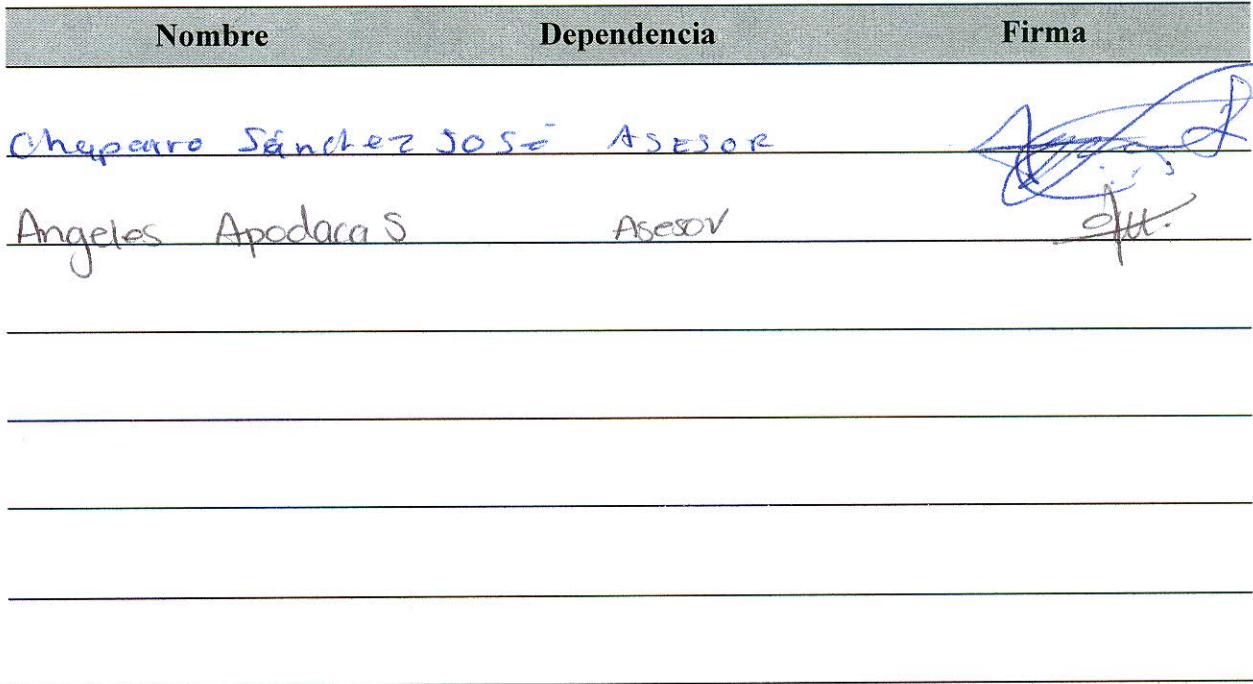 Nombre Dependencia Firma
Chaparro Sánchez José ASESOR
Angeles Apodaca S Asesor